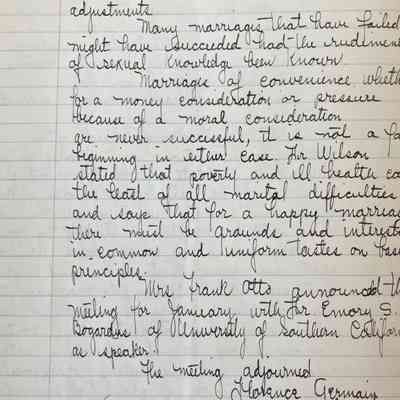 adjustments.
Many marriages that have failed
might have succeeded had the rudimen
of sexual knowledge been known
Marriages of convenience wheth
for a money consideration or pressure
because of a moral consideration
are never successful, it is not a fa
beginning in either case. Dr Wilson
stated that poverty and ill health ca
the least of all marital difficulties
and says that for a happy marriag
there must be grounds and interest
in common and uniform tastes on bas
principles.
Mrs Frank Otto announced th
meeting for January, with Dr Emory S.
Bogardus of University of Southern Califor
as speaker.
The meeting adjourned
Florence Germain